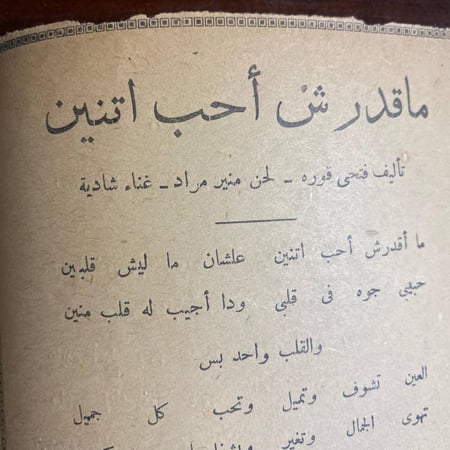 ماقدرش أحب اتنين
تأليف فتحى قوره ـ لحن منير مراد ـ غناء شادية
ما أقدرش أحب اتنين علشان ما ليش قلبين
حبيبى جوه فى قلبى ودا أجيب له قلب منين
والقلب واحد بس
العين تشوف وتميل وتحب كل جميل
تهوى الجمال وتغير